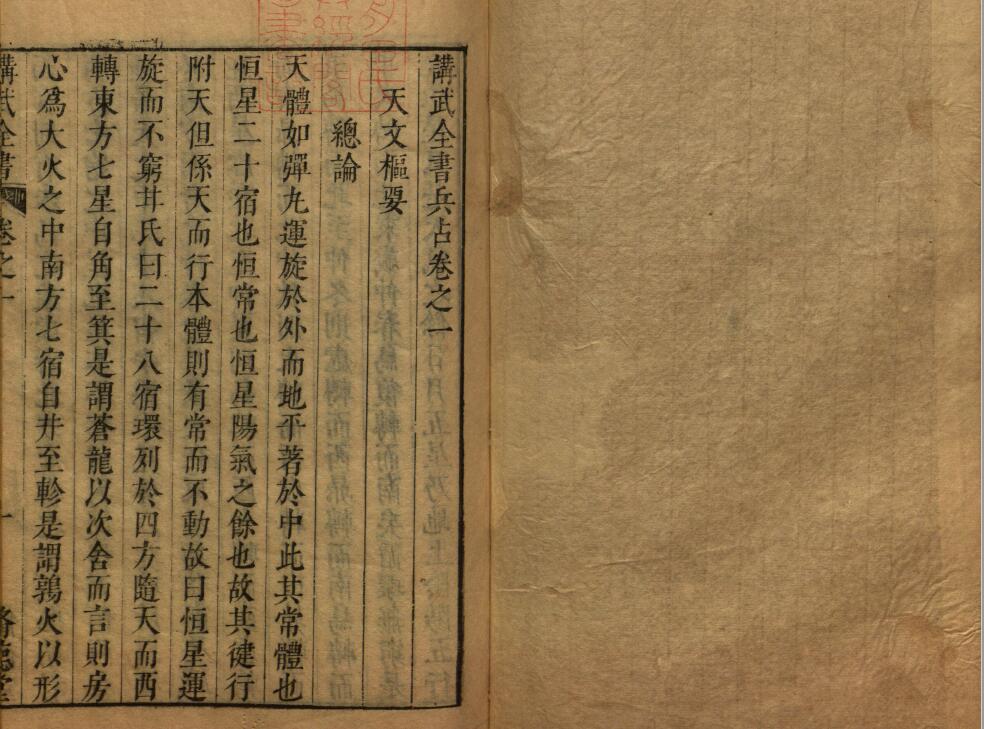 講武全書兵占卷之一
天文樞要
總論
天體如彈丸運旋於外而地平著於中此其常體也
恒星二十宿也恒常也恒星陽氣之餘也故其健行
附天但係天而行本體則有常而不動故曰恒星運
旋而不窮井氏曰二十八宿環列於四方隨天而西
轉東方七星自角至箕是謂蒼龍以次舍而言則房
心為大火之中南方七宿自井至軫是謂鶉火以形
講武全書
卷之一
一